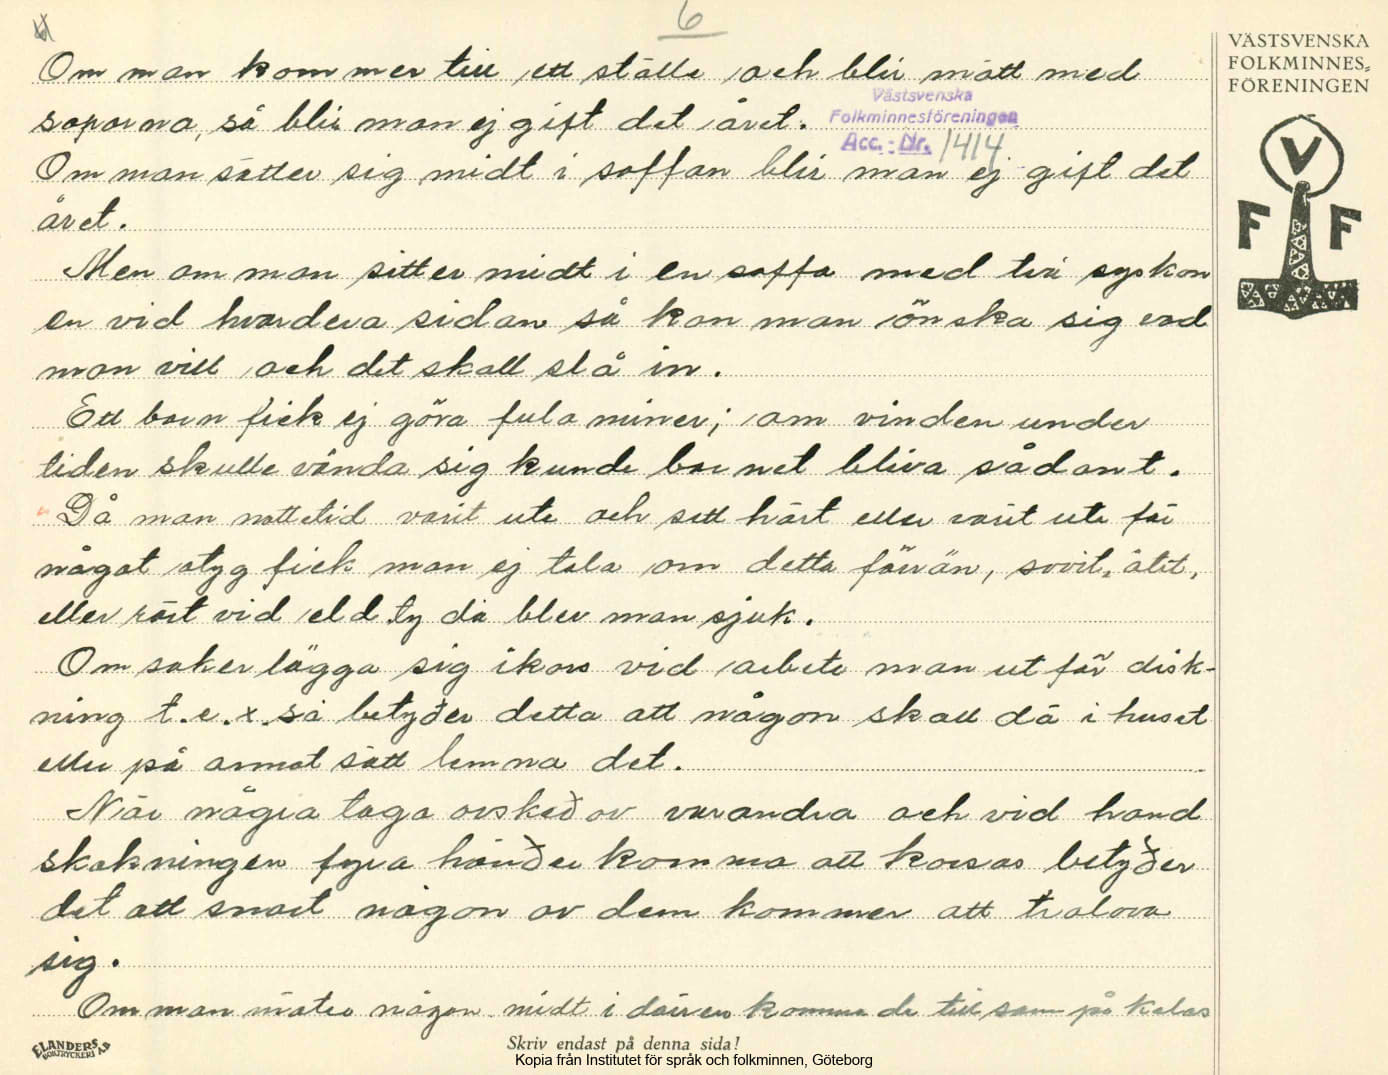 6
VÄSTSVENSKA
FOLKMINNES-
FÖRENINGEN
V
F F
Om man kommer till ett ställe och blir mött med
Västsvenska
Folkminnesföreningen
Acc.-Nr. 1414
soporna, så blir man ej gift det året.
Om man sätter sig midt i soffan blir man ej gift det
året.
Men om man sitter midt i en soffa med två syskon
en vid hvardera sidan så kan man önska sig vad
man vill och det skall slå in.
Ett barn fick ej göra fula miner; om vinden under
tiden skulle vända sig kunde barnet bliva sådant.
Då man nattetid varit ute och sett hört eller varit ute för
något otyg fick man ej tala om detta förrän, sovit, ätit,
eller rört vid eld ty då blev man sjuk.
Om saker lägga sig i kors vid arbete man utför disk-
ning t.e.x. så betyder detta att någon skall dö i huset
eller på annat sätt lemna det.
När några taga avsked av varandra och vid hand
skakningen fyra händer komma att korsas betyder
det att snart någon av dem kommer att trolova
sig.
Om man mötes någon midt i dörren komma de till sam på kalas
ELANDERS
BOKTRYCKERI A.B
Skriv endast på denna sida!
Kopia från Institutet för språk och folkminnen, Göteborg